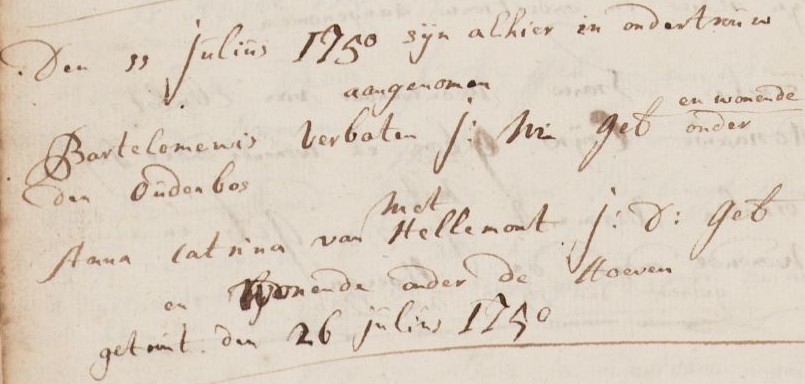 Den 11 julius 1750 syn alhier in ondertrouw
aangenomen
Bartelomewis Verbaten j: m geb en wonende onder
den Oudenbos
met
Anna Catrina van Hellemont j: D: geb
en Wonende onder de Hoeven
getrout den 26 julius 1750